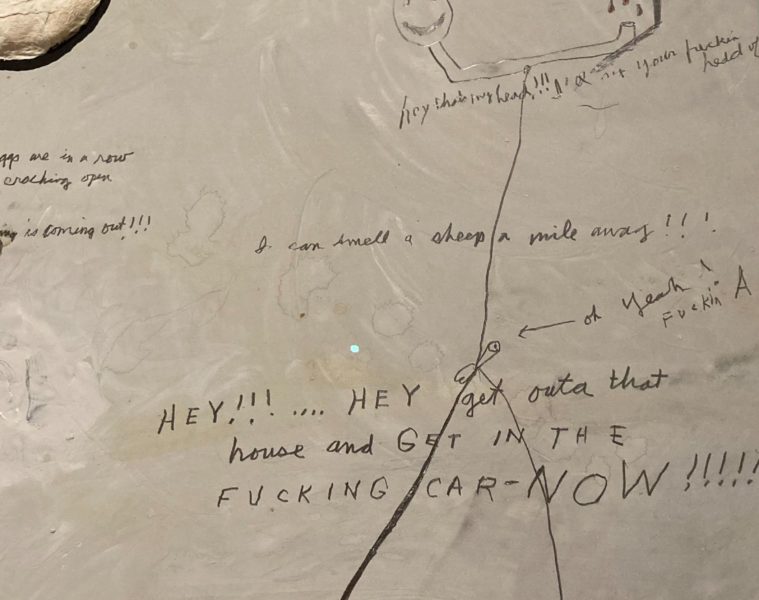 Hey shaking head!!! your fuckin
head of
are in a row
cracking open
is coming out!!!
I can smell a sheep a mile away!!!
oh yeah!
FUCKIN A
HEY!!! .... HEY get outa that
house and GET IN THE
FUCKING CAR-NOW!!!!!